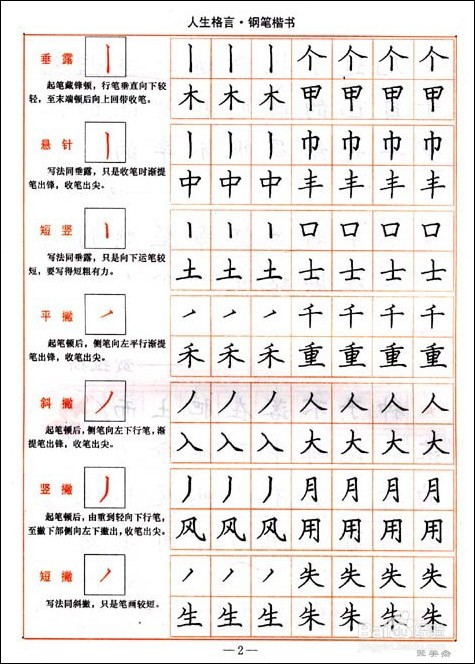 人生格言·钢笔楷书
垂露 丨
起笔藏锋顿，行笔垂直向下较
轻，至末端顿后向上回带收笔。
丨 丨 丨 个 个 个 个
木 木 木 甲 甲 甲 甲
悬针 丨
写法同垂露，只是收笔时渐提
笔出锋，收笔出尖。
丨 丨 丨 巾 巾 巾 巾
中 中 中 丰 丰 丰 丰
短竖 丨
写法同垂露，只是向下运笔较
短，要写得短粗有力。
丨 丨 丨 口 口 口 口
土 土 土 士 士 士 士
平撇 ㇒
起笔顿后，侧笔向左平行渐提
笔出锋，收笔出尖。
㇒ ㇒ ㇒ 千 千 千 千
禾 禾 禾 重 重 重 重
斜撇 丿
起笔顿后，侧笔向左下行笔，渐
提笔出锋，收笔出尖。
丿 丿 丿 人 人 人 人
入 入 入 大 大 大 大
竖撇 丿
起笔顿后，由重到轻向下行笔，
至撇下部侧向左下撇出，收笔出尖。
丿 丿 丿 月 月 月 月
风 风 风 用 用 用 用
短撇 ㇒
写法同斜撇，只是笔画较短。
㇒ ㇒ ㇒ 失 失 失 失
生 生 生 朱 朱 朱 朱
—2—